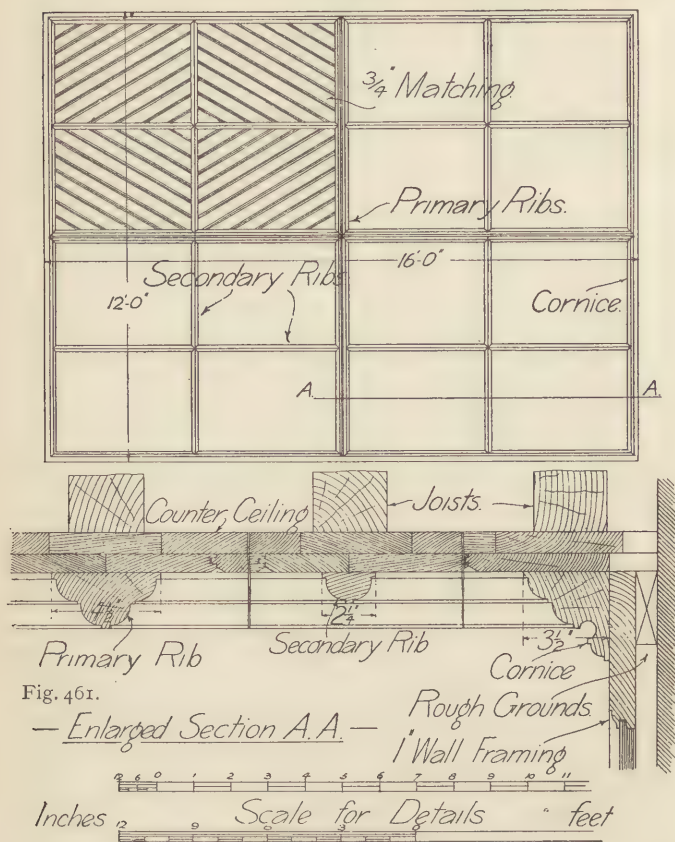 3/4" Matching
Primary Ribs.
Secondary Ribs
16'-0"
12'-0"
Cornice.
A. A.
Counter Ceiling
Joists.
2 1/4"
3 1/2"
Primary Rib
Secondary Rib
Cornice
Fig. 461.
Rough Grounds
— Enlarged Section A.A. —
1" Wall Framing
12 6 0 1 2 3 4 5 6 7 8 9 10 11
Inches Scale for Details feet
12 9